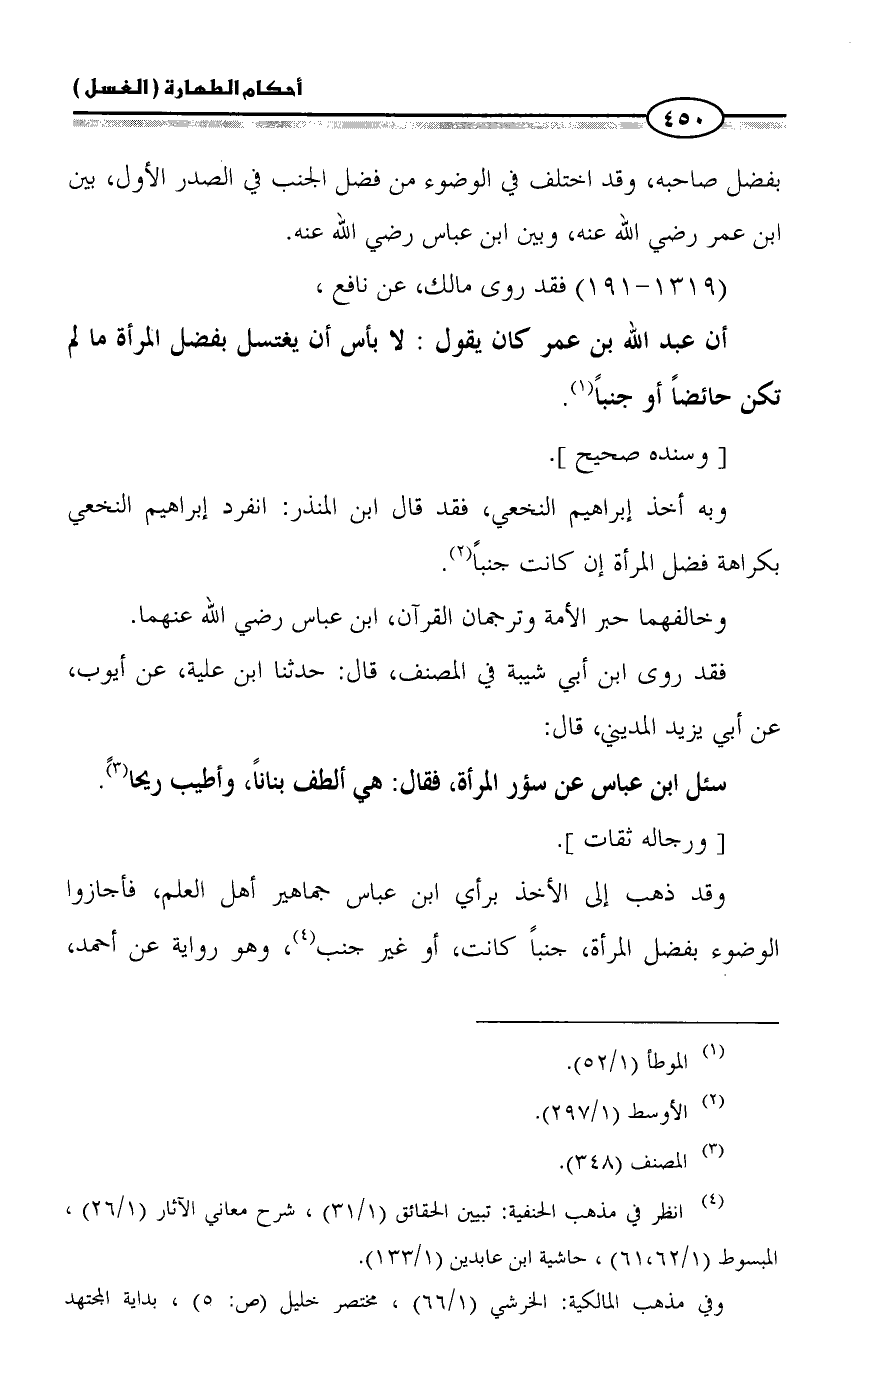 أحكام الطهارة ( الغسل )
٤٥٠
بفضل صاحبه، وقد اختلف في الوضوء من فضل الجنب في الصدر الأول، بين
ابن عمر رضي الله عنه، وبين ابن عباس رضي الله عنه.
(١٣١٩-١٩١) فقد روى مالك، عن نافع ،
أن عبد الله بن عمر كان يقول : لا بأس أن يغتسل بفضل المرأة ما لم
تكن حائضاً أو جنباً(١).
[ وسنده صحيح ].
وبه أخذ إبراهيم النخعي، فقد قال ابن المنذر: انفرد إبراهيم النخعي
بكراهة فضل المرأة إن كانت جنباً(٢).
وخالفهما حبر الأمة وترجمان القرآن، ابن عباس رضي الله عنهما.
فقد روى ابن أبي شيبة في المصنف، قال: حدثنا ابن علية، عن أيوب،
عن أبي يزيد المديني، قال:
سئل ابن عباس عن سؤر المرأة، فقال: هي ألطف بناناً، وأطيب ريحاً(٣).
[ ورجاله ثقات ].
وقد ذهب إلى الأخذ برأي ابن عباس جماهير أهل العلم، فأجازوا
الوضوء بفضل المرأة، جنباً كانت، أو غير جنب(٤)، وهو رواية عن أحمد،
(١) الموطأ (٥٢/١).
(٢) الأوسط (٢٩٧/١).
(٣) المصنف (٣٤٨).
(٤) انظر في مذهب الحنفية: تبيين الحقائق (٣١/١) ، شرح معاني الآثار (٢٦/١) ،
المبسوط (٦١،٦٢/١) ، حاشية ابن عابدين (١٣٣/١).
وفي مذهب المالكية: الخرشي (٦٦/١) ، مختصر خليل (ص: ٥) ، بداية المجتهد